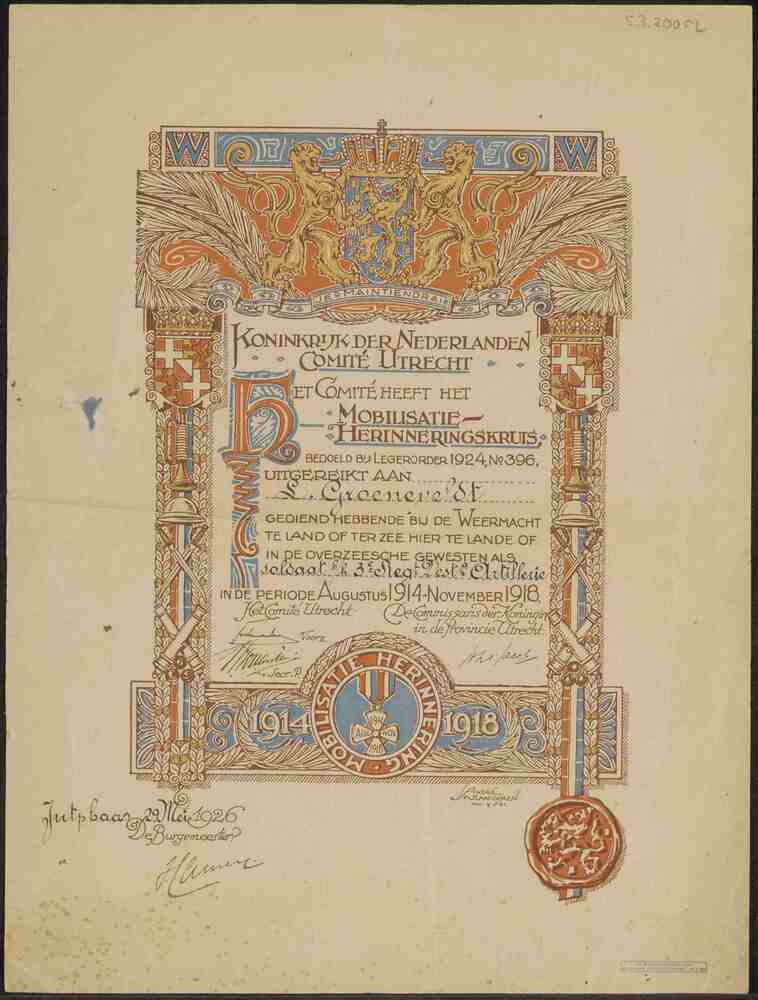 W W
JE MAINTIENDRAI
KONINKRIJK DER NEDERLANDEN
COMITÉ UTRECHT
HET COMITÉ HEEFT HET
MOBILISATIE-
HERINNERINGSKRUIS,
BEDOELD BIJ LEGERORDER 1924, No 396,
UITGEREIKT AAN
L. Groeneveldt
GEDIEND HEBBENDE BIJ DE WEERMACHT
TE LAND OF TER ZEE HIER TE LANDE OF
IN DE OVERZEESCHE GEWESTEN ALS
soldaat b/h 3e Regt Vestg Artillerie
IN DE PERIODE AUGUSTUS 1914-NOVEMBER 1918.
Het Comité Utrecht
De Commissaris der Koningin
in de Provincie Utrecht
Voorz
Secr. P.
MOBILISATIE HERINNERING
1914 1918
Jutphaas 22 Mei 1926
De Burgemeester